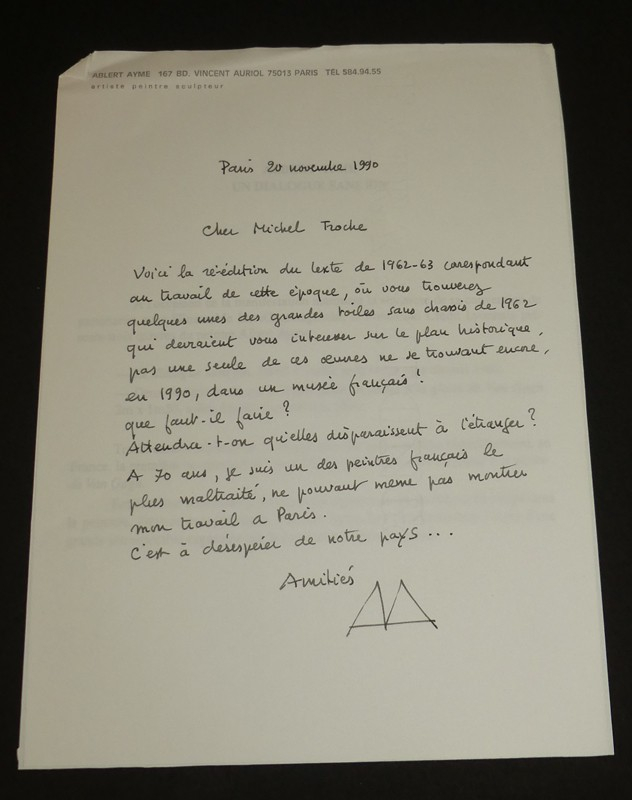 ABLERT AYME 167 BD. VINCENT AURIOL 75013 PARIS TÉL 584.94.55
artiste peintre sculpteur
Paris 20 novembre 1990
Cher Michel Troche
Voici la ré-édition du texte de 1962-63 correspondant
au travail de cette époque, où vous trouverez
quelques unes des grandes toiles sans chassis de 1962
qui devraient vous interesser sur le plan historique,
pas une seule de ces œuvres ne se trouvant encore,
en 1990, dans un musée français !
que faut-il faire ?
Attendra-t-on qu'elles disparaissent à l'étranger ?
A 70 ans, je suis un des peintres français le
plus maltraité, ne pouvant même pas montrer
mon travail a Paris.
C'est à désespérer de notre pays ...
Amitiés
AA